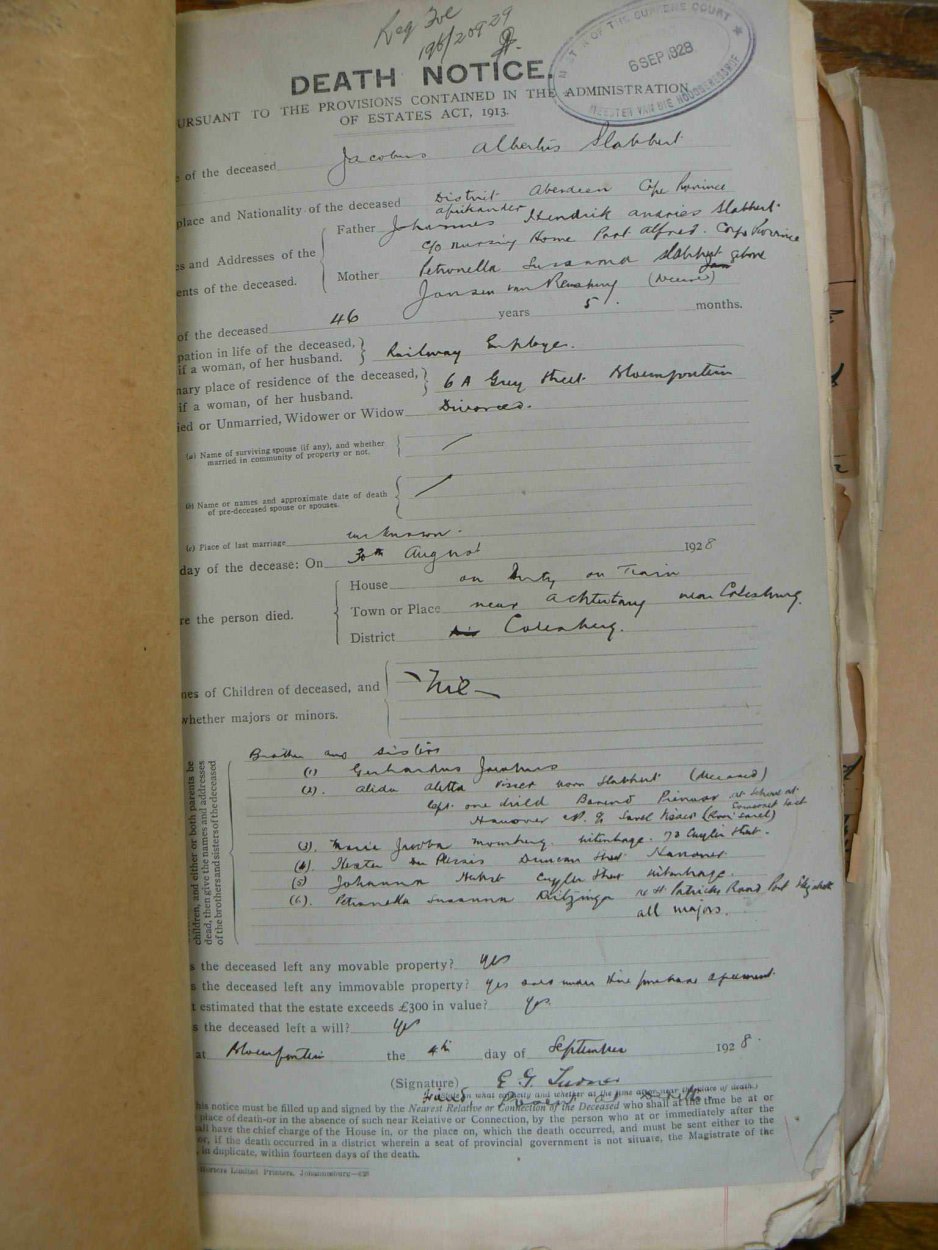 DEATH NOTICE.
6 SEP 1928
URSUANT TO THE PROVISIONS CONTAINED IN THE ADMINISTRATION
OF ESTATES ACT, 1913.
of the deceased Jacobus Albertus Slabbert
place and Nationality of the deceased District Aberdeen Cape Province
Afrikander
es and Addresses of the
ents of the deceased.
Father Johannes Hendrik Andries Slabbert
c/o Nursing Home Port Alfred. Cape Province
Mother Petronella Susanna Slabbert gebore
Jansen van Rensburg (deceased)
of the deceased 46 years 5 months.
pation in life of the deceased,
if a woman, of her husband. Railway Employe.
nary place of residence of the deceased,
if a woman, of her husband. 6 A Grey Street Bloemfontein
ied or Unmarried, Widower or Widow Divorced.
(a) Name of surviving spouse (if any), and whether
married in community of property or not.
(b) Name or names and approximate date of death
of pre-deceased spouse or spouses.
(c) Place of last marriage unknown.
day of the decease: On 30th August 1928
re the person died.
House on Duty on Train
Town or Place near Achtertang near Colesburg.
District Colesberg.
nes of Children of deceased, and
whether majors or minors.
Nil
children, and either or both parents be
dead, then give the names and addresses
of the brothers and sisters of the deceased
Brother and Sisters
(1) Gerhardus Jacobus
(2). Alida Aletta Visser born Slabbert (deceased)
left one child Barend Pienaar at School at
Somerset East
Hanover Sarel Visser
(3). Maria Jacoba Uitenhage. 73 Cuyler Street.
(4). Hester Du Plessis Duncan Street Hanover
(5) Johanna Cuyler Street Uitenhage.
(6). Petronella Susanna Ditzinger St Patricks Road Port Elizabeth
all majors.
s the deceased left any movable property? yes
s the deceased left any immovable property? yes under Hire purchase agreement
t estimated that the estate exceeds £300 in value? yes.
s the deceased left a will? yes
at Bloemfontein the 4th day of September 1928.
(Signature) E. G. Turner
in what capacity and whether at the time at or near the place of death.)
Friend present at
his notice must be filled up and signed by the Nearest Relative or Connection of the Deceased who shall at the time be at or
place of death-or in the absence of such near Relative or Connection, by the person who at or immediately after the
all have the chief charge of the House in, or the place on, which the death occurred, and must be sent either to the
or, if the death occurred in a district wherein a seat of provincial government is not situate, the Magistrate of the
, in duplicate, within fourteen days of the death.
Horters Limited Printers, Johannesburg